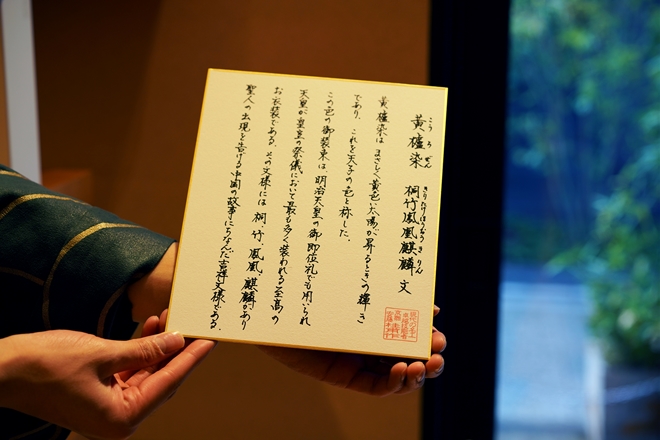 こうろぜん きりたけほうおうきりん
黃櫨染 桐竹鳳凰麒麟文
黃櫨染は まさしく黄色い太陽が昇るときの輝き
であり、これを天子の色と称した。
この色の御装束は、明治天皇の御即位礼でも用いられ
天皇が皇室の祭儀において最も多く装われる至高の
お衣装である。その文様には 桐 竹 鳳凰 麒麟があり
聖人の出現を告げる中国の故事にちなんだ吉祥文様である。
現代の名工